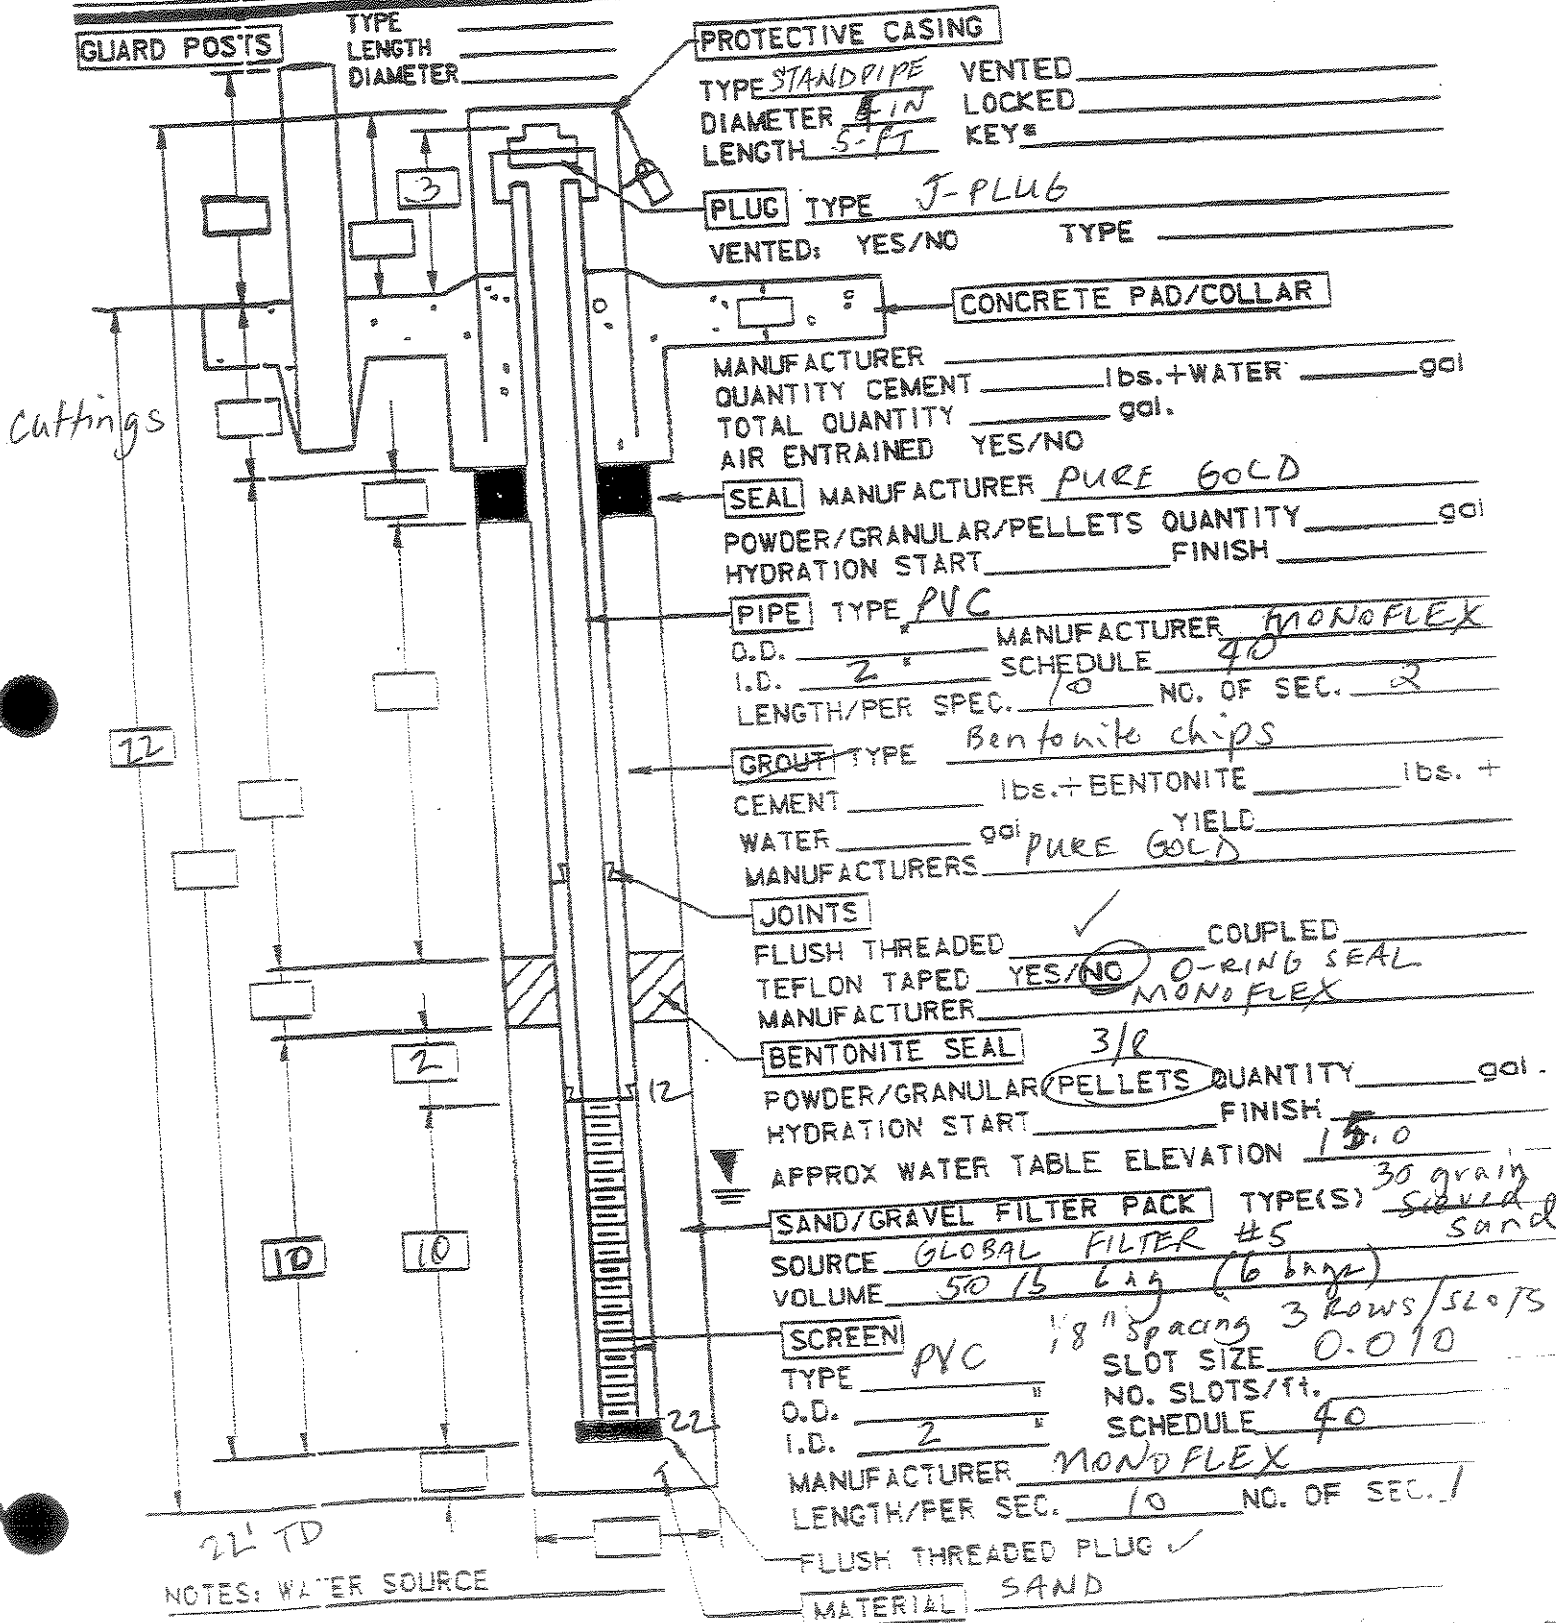 GUARD POSTS
TYPE
LENGTH
DIAMETER
PROTECTIVE CASING
TYPE STANDPIPE VENTED
DIAMETER 4 IN LOCKED
LENGTH 5-FT KEY#
3
PLUG TYPE J-PLUG
VENTED: YES/NO TYPE
CONCRETE PAD/COLLAR
MANUFACTURER
QUANTITY CEMENT lbs.+WATER gal
TOTAL QUANTITY gal.
AIR ENTRAINED YES/NO
Cuttings
SEAL MANUFACTURER PURE GOLD
POWDER/GRANULAR/PELLETS QUANTITY gal
HYDRATION START FINISH
PIPE TYPE PVC
O.D. " MANUFACTURER MONOFLEX
I.D. 2 " SCHEDULE 40
LENGTH/PER SPEC. 10 NO. OF SEC. 2
22
GROUT TYPE Bentonite chips
CEMENT lbs.+BENTONITE lbs. +
WATER gal YIELD
MANUFACTURERS PURE GOLD
JOINTS
FLUSH THREADED ✓ COUPLED
TEFLON TAPED YES/NO O-RING SEAL
MANUFACTURER MONOFLEX
BENTONITE SEAL 3/8
2
12
POWDER/GRANULAR/PELLETS QUANTITY gal.
HYDRATION START FINISH
APPROX WATER TABLE ELEVATION 15.0
SAND/GRAVEL FILTER PACK TYPE(S) 30 grain sieved sand
SOURCE GLOBAL FILTER #5
VOLUME 50 lb bag (6 bags)
10
10
SCREEN 1/8" spacing 3 ROWS/SLOTS
TYPE PVC SLOT SIZE 0.010
O.D. " NO. SLOTS/ft.
I.D. 2 " SCHEDULE 40
22
MANUFACTURER MONOFLEX
LENGTH/PER SEC. 10 NO. OF SEC. 1
22' TD
FLUSH THREADED PLUG ✓
NOTES: WATER SOURCE
MATERIAL SAND